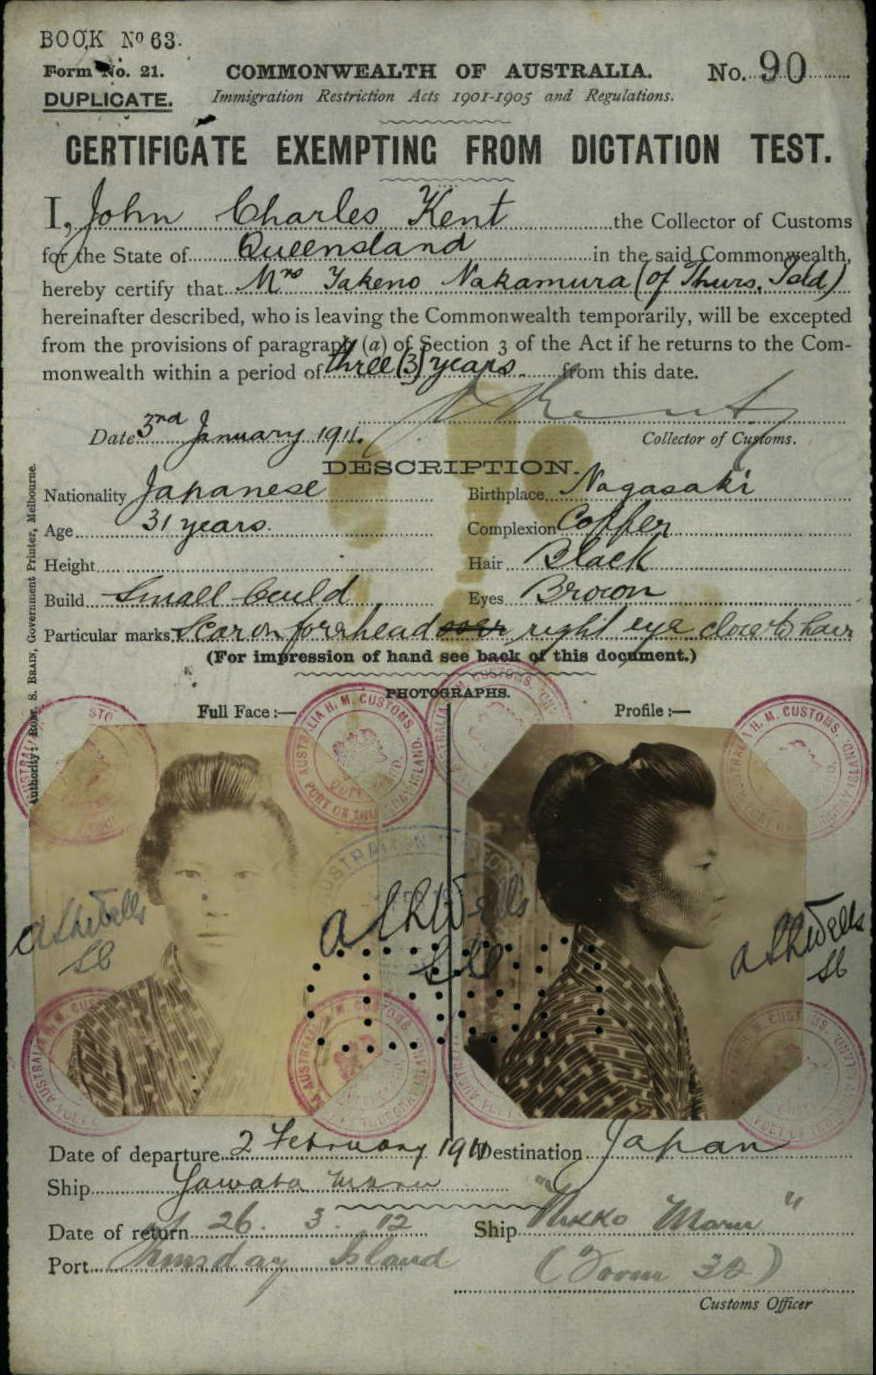 BOOK No 63.
Form No. 21. COMMONWEALTH OF AUSTRALIA. No. 90
DUPLICATE. Immigration Restriction Acts 1901-1905 and Regulations.
CERTIFICATE EXEMPTING FROM DICTATION TEST.
I, John Charles Kent the Collector of Customs
for the State of Queensland in the said Commonwealth,
hereby certify that Mrs Takeno Nakamura (of Thurs. Isld)
hereinafter described, who is leaving the Commonwealth temporarily, will be excepted
from the provisions of paragraph (a) of Section 3 of the Act if he returns to the Com-
monwealth within a period of three (3) years from this date.
Date 3rd January 1911. Collector of Customs.
DESCRIPTION.
Nationality Japanese Birthplace Nagasaki
Age 31 years. Complexion Copper
Height Hair Black
Build Small build Eyes Brown
Particular marks. Scar on forehead over right eye close to hair
(For impression of hand see back of this document.)
PHOTOGRAPHS.
Full Face :— Profile :—
AUSTRALIA H. M. CUSTOMS.
H. M. CUSTOMS.
AshWells
AshWells
AshWells
Date of departure 2 February 1911 Destination Japan
Ship Yawata Maru
Date of return 26. 3. 12 Ship "Nikko Maru"
Port Thursday Island (Form 32)
Customs Officer
Authority: Robt. S. Brain, Government Printer, Melbourne.